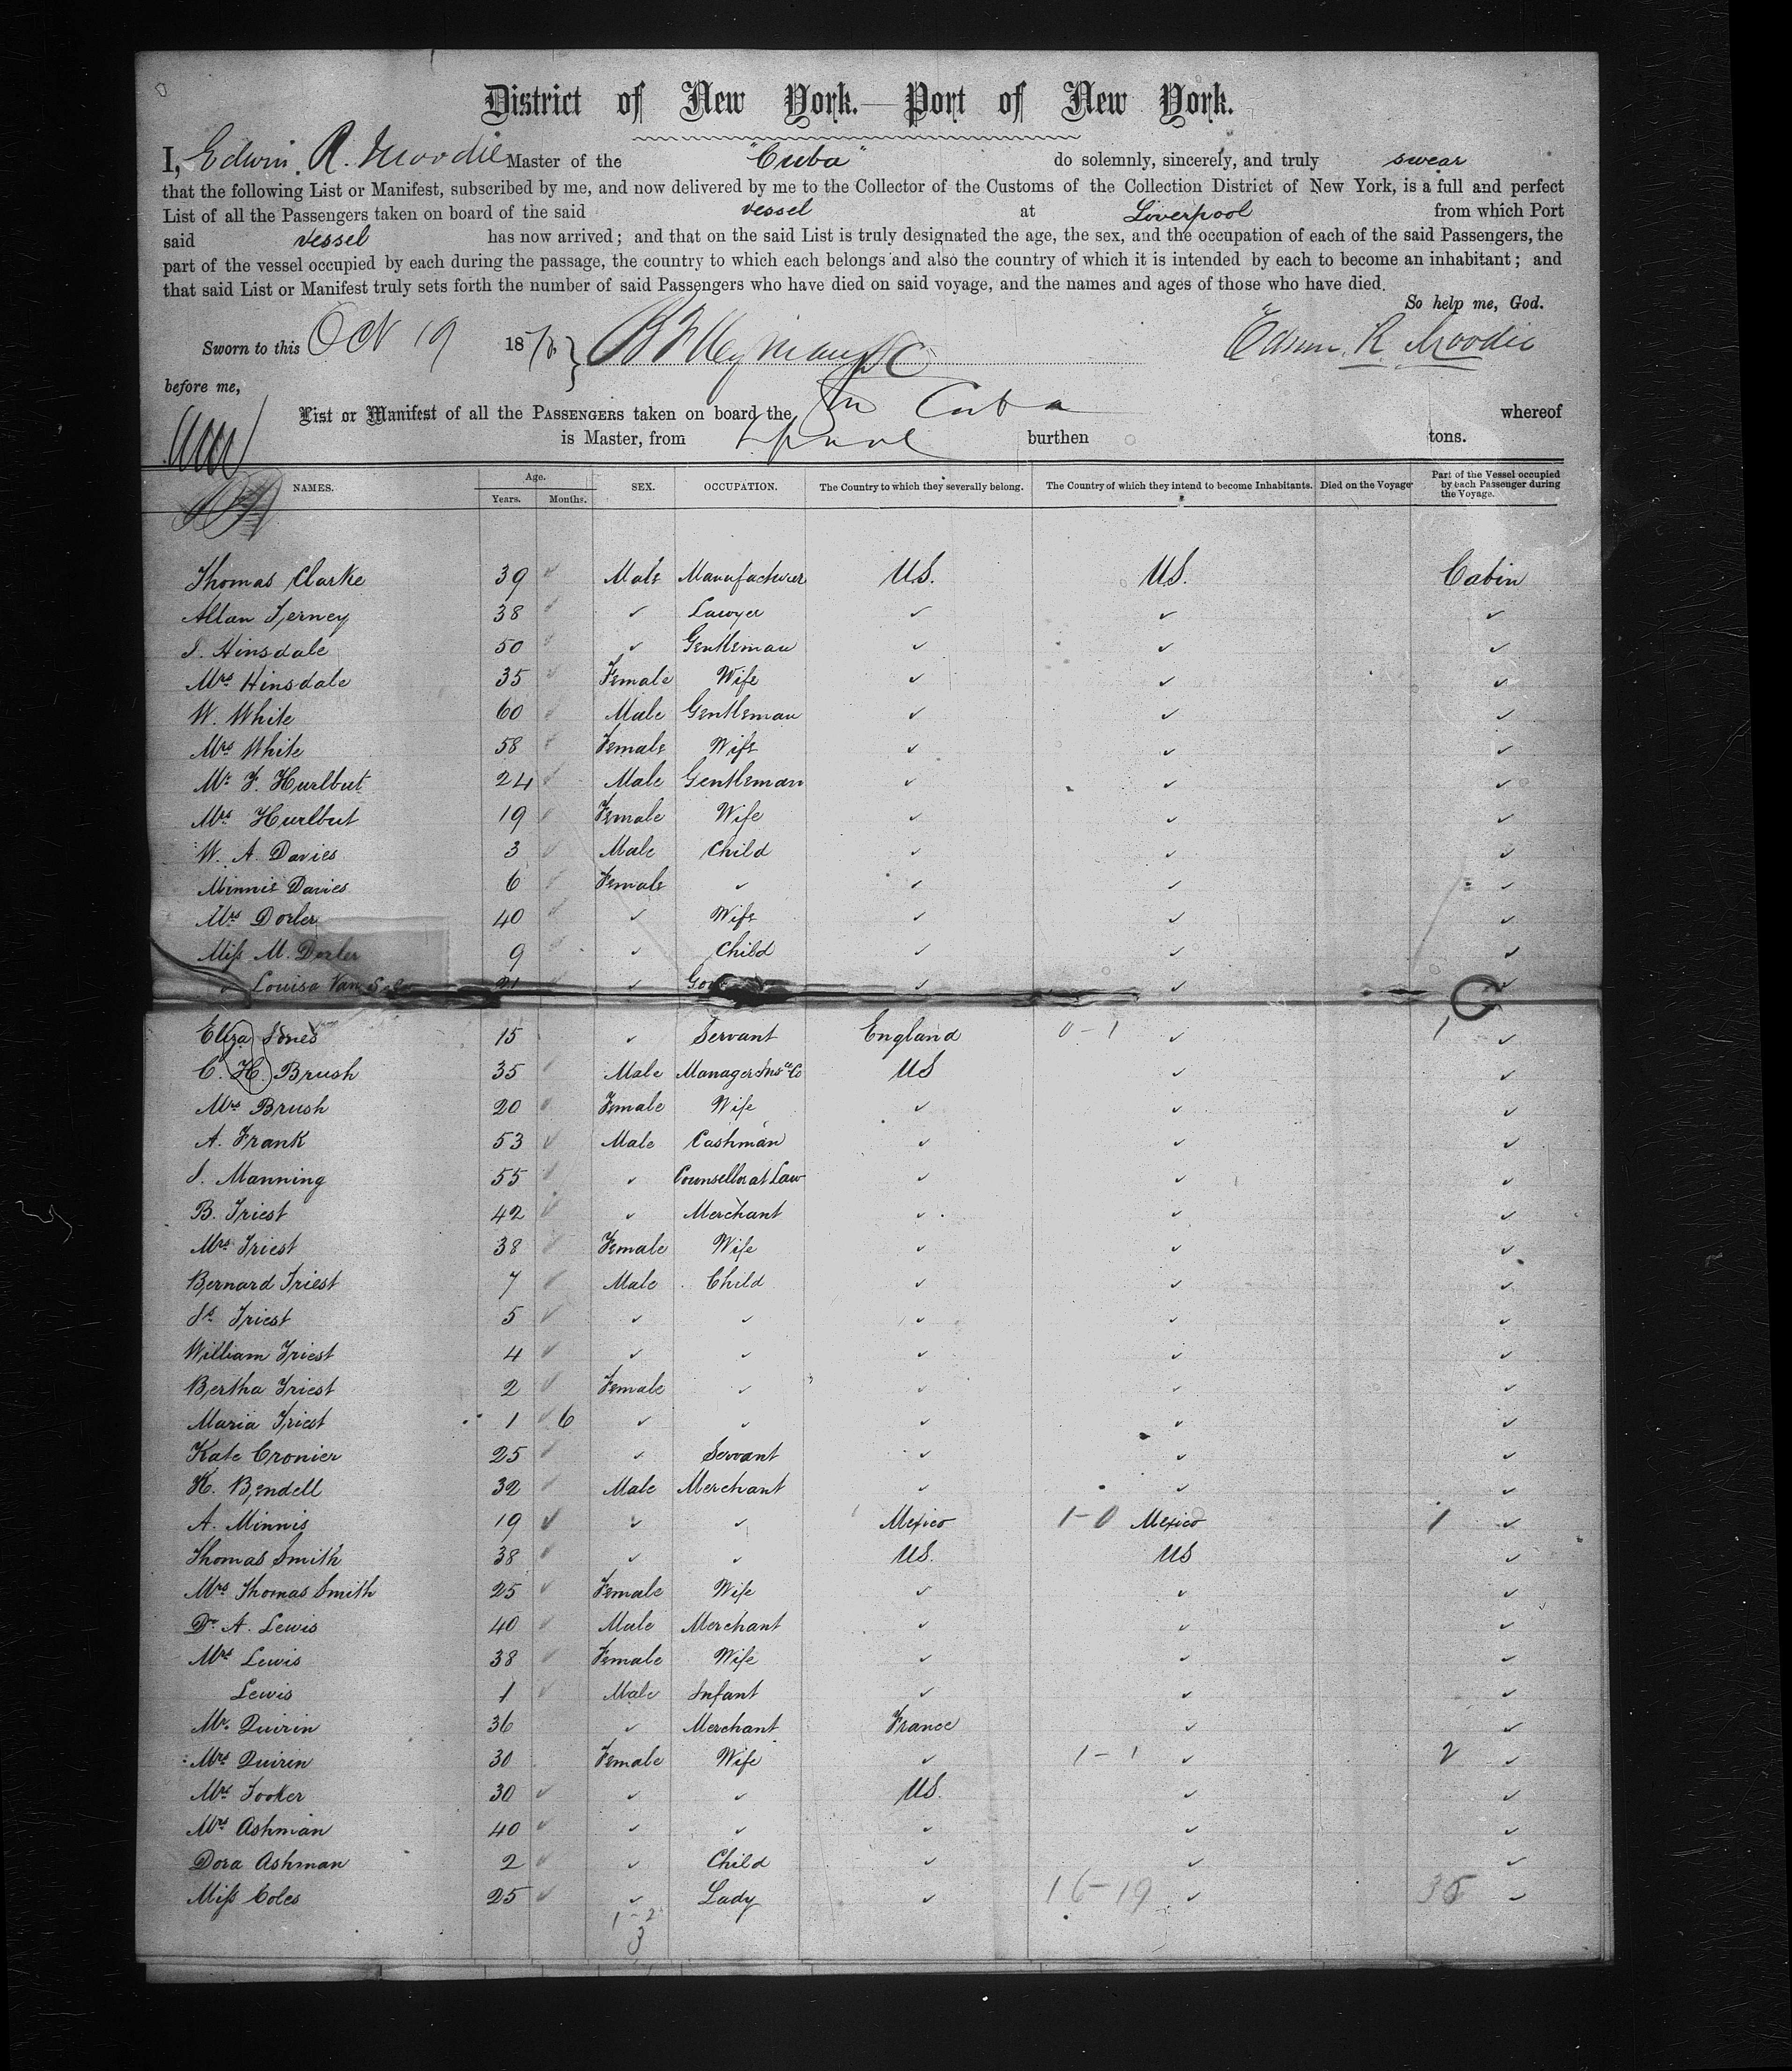 District of New York.—Port of New York.
I, Edwin. R. Moodie Master of the "Cuba" do solemnly, sincerely, and truly swear
that the following List or Manifest, subscribed by me, and now delivered by me to the Collector of the Customs of the Collection District of New York, is a full and perfect
List of all the Passengers taken on board of the said vessel at Liverpool from which Port
said vessel has now arrived; and that on the said List is truly designated the age, the sex, and the occupation of each of the said Passengers, the
part of the vessel occupied by each during the passage, the country to which each belongs and also the country of which it is intended by each to become an inhabitant; and
that said List or Manifest truly sets forth the number of said Passengers who have died on said voyage, and the names and ages of those who have died.
So help me, God.
Sworn to this Oct 19 18 Edwin. R Moodie
before me,
List or Manifest of all the PASSENGERS taken on board the Cuba whereof
is Master, from Lpool burthen tons.
NAMES. Age. Years. Months. SEX. OCCUPATION. The Country to which they severally belong. The Country of which they intend to become Inhabitants. Died on the Voyage Part of the Vessel occupied by each Passenger during the Voyage.
Thomas Clarke 39 ✓ Male Manufacturer U.S. U.S. Cabin
Allan 38 ✓ ✓ Lawyer ✓ ✓ ✓
S. Hinsdale 50 ✓ ✓ Gentleman ✓ ✓ ✓
Mrs Hinsdale 35 ✓ Female Wife ✓ ✓ ✓
W. White 60 ✓ Male Gentleman ✓ ✓ ✓
Mrs White 58 ✓ Female Wife ✓ ✓ ✓
Mr F. Hurlbut 24 ✓ Male Gentleman ✓ ✓ ✓
Mrs Hurlbut 19 ✓ Female Wife ✓ ✓ ✓
W. A. Davies 3 ✓ Male Child ✓ ✓ ✓
Minnie Davies 6 ✓ Female ✓ ✓ ✓ ✓
Mrs Dorler 40 ✓ ✓ Wife ✓ ✓ ✓
Miss M. Dorler 9 ✓ ✓ Child ✓ ✓ ✓
" Louisa Van 21 ✓ ✓ ✓ ✓ ✓
Eliza Jones 15 ✓ Servant England 0-1 ✓ 1 ✓
C. H. Brush 35 ✓ Male Manager Insce Co US ✓ ✓
Mrs Brush 20 ✓ Female Wife ✓ ✓ ✓
A. Frank 53 ✓ Male Cashman ✓ ✓ ✓
S. Manning 55 ✓ ✓ Counsellor at Law ✓ ✓ ✓
B. Triest 42 ✓ ✓ Merchant ✓ ✓ ✓
Mrs Triest 38 ✓ Female Wife ✓ ✓ ✓
Bernard Triest 7 ✓ Male Child ✓ ✓ ✓
Triest 5 ✓ ✓ ✓ ✓ ✓ ✓
William Triest 4 ✓ ✓ ✓ ✓ ✓ ✓
Bertha Triest 2 ✓ Female ✓ ✓ ✓ ✓
Maria Triest 1 ✓ 6 ✓ ✓ ✓ ✓ ✓
Kate Cronier 25 ✓ ✓ Servant ✓ ✓ ✓
H. Bendell 32 ✓ Male Merchant ✓ ✓ ✓
A. Minnis 19 ✓ ✓ ✓ Mexico 1-0 Mexico 1 ✓
Thomas Smith 38 ✓ ✓ ✓ US. US ✓
Mrs Thomas Smith 25 ✓ Female Wife ✓ ✓ ✓
Dr A. Lewis 40 ✓ Male Merchant ✓ ✓ ✓
Mrs Lewis 38 ✓ Female Wife ✓ ✓ ✓
Lewis 1 ✓ Male Infant ✓ ✓ ✓
Mr. Quirin 36 ✓ Merchant France ✓ ✓
Mrs Quirin 30 Female Wife ✓ 1-1 ✓ 2 ✓
Mrs Tooker 30 ✓ ✓ ✓ US. ✓ ✓
Mrs Ashman 40 ✓ ✓ ✓ ✓ ✓ ✓
Dora Ashman 2 ✓ ✓ Child ✓ ✓ ✓
Miss Coles 25 ✓ ✓ Lady ✓ 16-19 ✓ 35 ✓
1-2
3